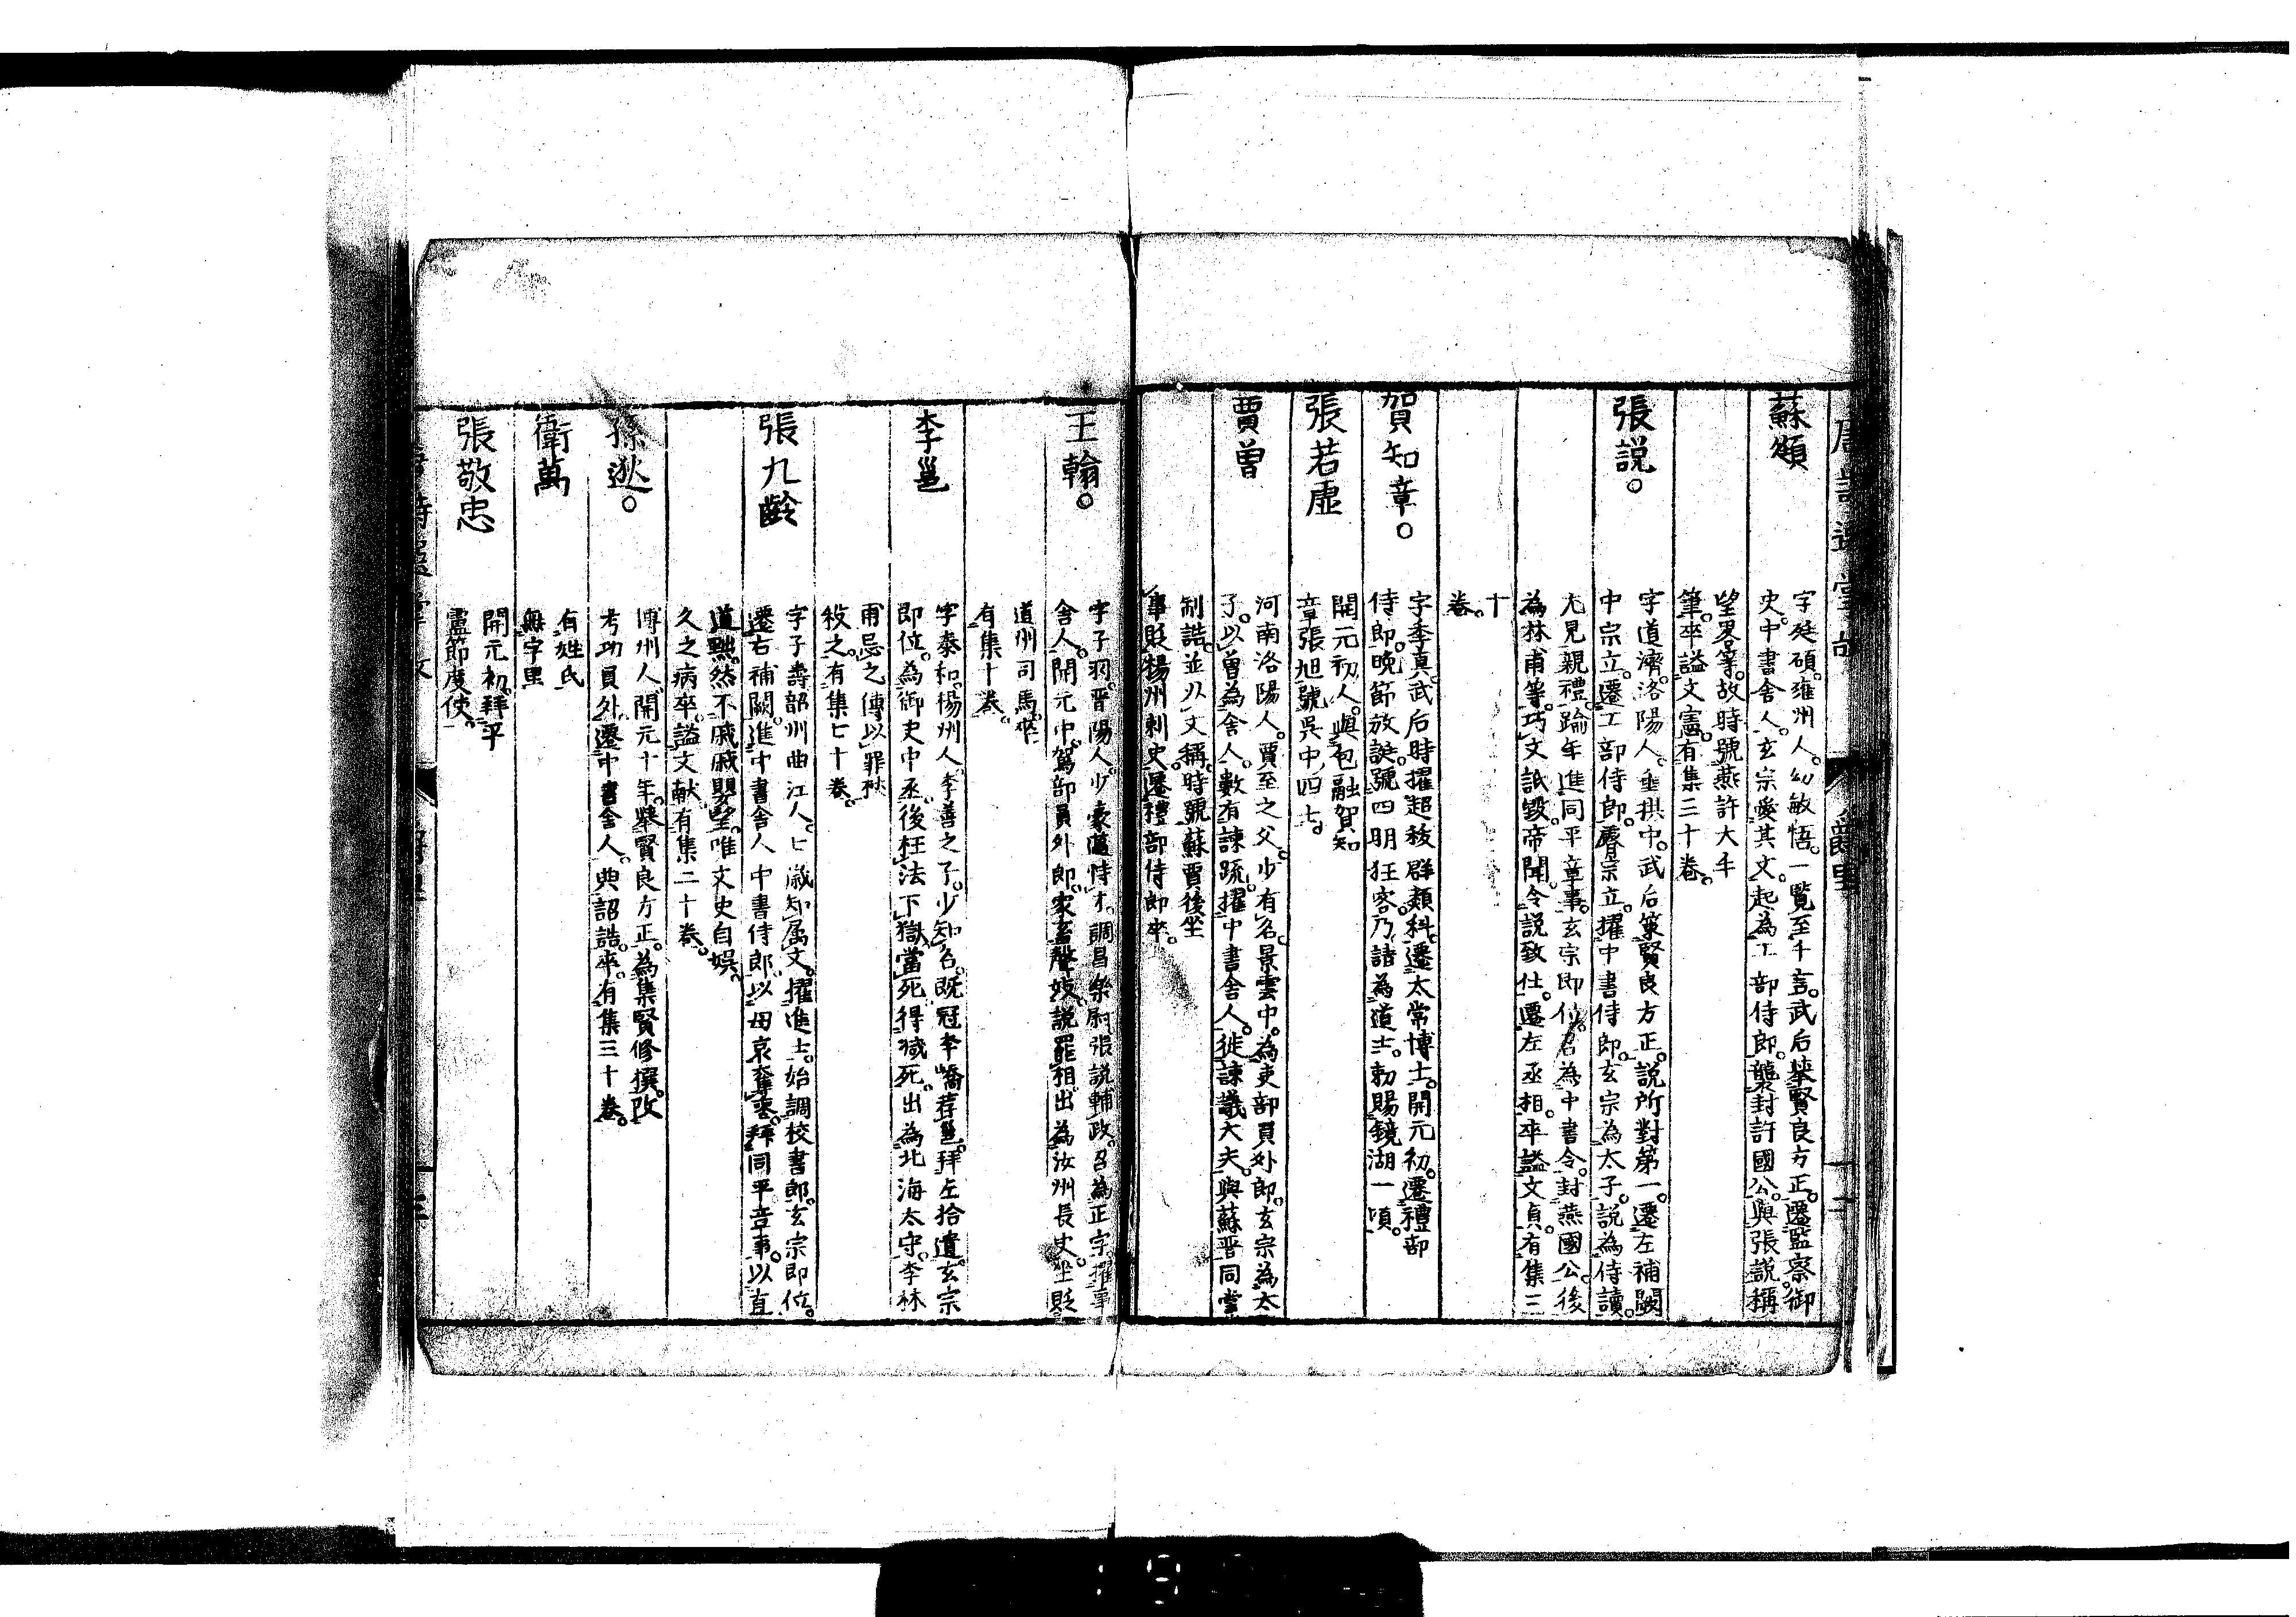 唐詩選掌故　爵里　二
蘇頲
字廷碩。雍州人。幼敏悟。一覽至千言。武后舉賢良方正。遷監察御
史。中書舍人。玄宗愛其文。起為工部侍郎。襲封許國公。與張說稱
望畧等。故時號燕許大手
筆。卒謚文憲。有集三十卷。
張說。
字道濟。洛陽人。垂拱中。武后策賢良方正。說所對第一。遷左補闕
中宗立。遷工部侍郎。睿宗立。擢中書侍郎。玄宗為太子。說為侍讀。
尤見親禮。踰年進同平章事。玄宗即位。召為中書令。封燕國公。後
為林甫等。巧文詆毀。帝聞。令說致仕。遷左丞相。卒謚文貞。有集三
十
卷。
賀知章。
字季真。武后時擢超拔群類科。遷太常博士。開元初。遷禮部
侍郎。晚節放誕。號四明狂客。乃請為道士。勅賜鏡湖一頃。
張若虛
開元初人。與包融賀知
章張旭號吳中四士。
賈曾
河南洛陽人。賈至之父。少有名。景雲中。為吏部員外郎。玄宗為太
子。以曾為舍人。數有諫疏。擢中書舍人。徙諫議大夫。與蘇晋同掌
制誥。並以文稱。時號蘇賈後坐
事貶楊州刺史。遷禮部侍郎卒。
王翰。
字子羽。晋陽人。少豪蕩恃才。調昌樂尉張說輔政。召為正字。擢事
舍人。開元中。駕部員外郎。家畜聲妓。說罷相。出為汝州長史。坐貶
道州司馬。卒。
有集十卷。
李邕
字泰和。楊州人。李善之子。少知名。既冠李嶠荐邕。拜左拾遺。玄宗
即位。為御史中丞。後枉法下獄。當死。得減死。出為北海太守。李林
甫忌之傳以罪
殺之。有集七十卷。
張九齡
字子壽韶州曲江人。七歲知属文。擢進士。始調校書郎。玄宗即位。
遷右補闕。進中書舍人中書侍郎。以母哀奪喪。拜同平章事。以直
道黜。然不戚戚嬰望。唯文史自娛。
久之病卒。謚文献。有集二十卷。
孫逖。
博州人。開元十年。舉賢良方正。為集賢修撰。改
考功員外。遷中書舍人。典詔誥。卒。有集三十卷。
衛萬
有姓氏
無字里
張敬忠
開元初。拜平
盧節度使。